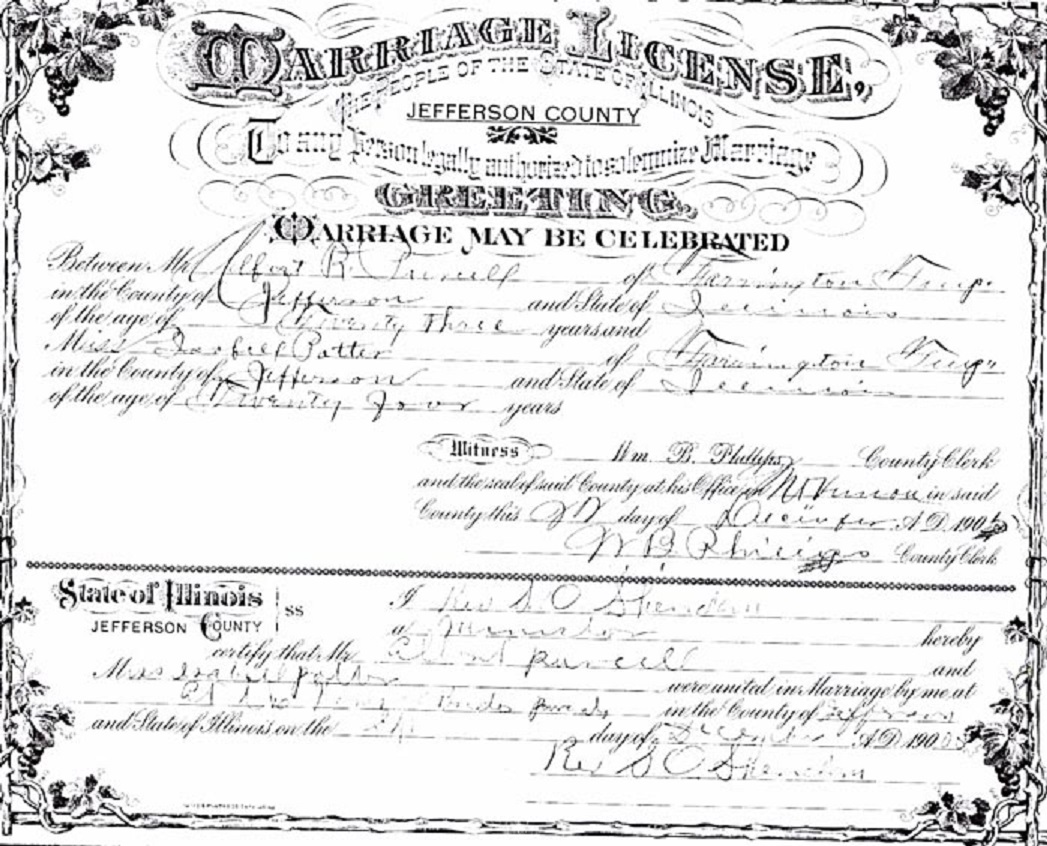 MARRIAGE LICENSE,
THE PEOPLE OF THE STATE OF ILLINOIS
JEFFERSON COUNTY
To any Person legally authorized to solemnize Marriage
GREETING.
MARRIAGE MAY BE CELEBRATED
Between Mr Albert R. Purcell of Farrington Twp.
in the County of Jefferson and State of Illinois
of the age of Twenty Three years and
Miss Isabell Potter of Farrington Twp.
in the County of Jefferson and State of Illinois
of the age of Twenty four years
Witness Wm. B. Phillips, County Clerk
and the seal of said County at his Office in Mt Vernon in said
County this day of December A.D. 190
W B Phillips County Clerk
State of Illinois ss I Rev S O
JEFFERSON COUNTY a Minister hereby
certify that Mr Albert Purcell and
Miss Isabell Potter were united in Marriage by me at
in the County of Jefferson
and State of Illinois on the day of December A.D. 190
Rev S O